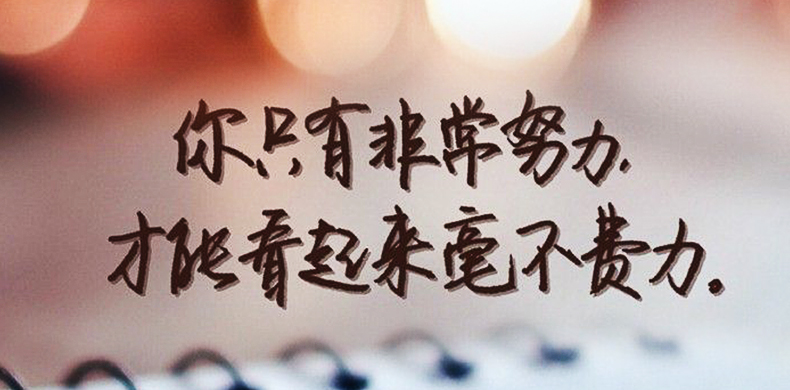 你只有非常努力,
才能看起来毫不费力。